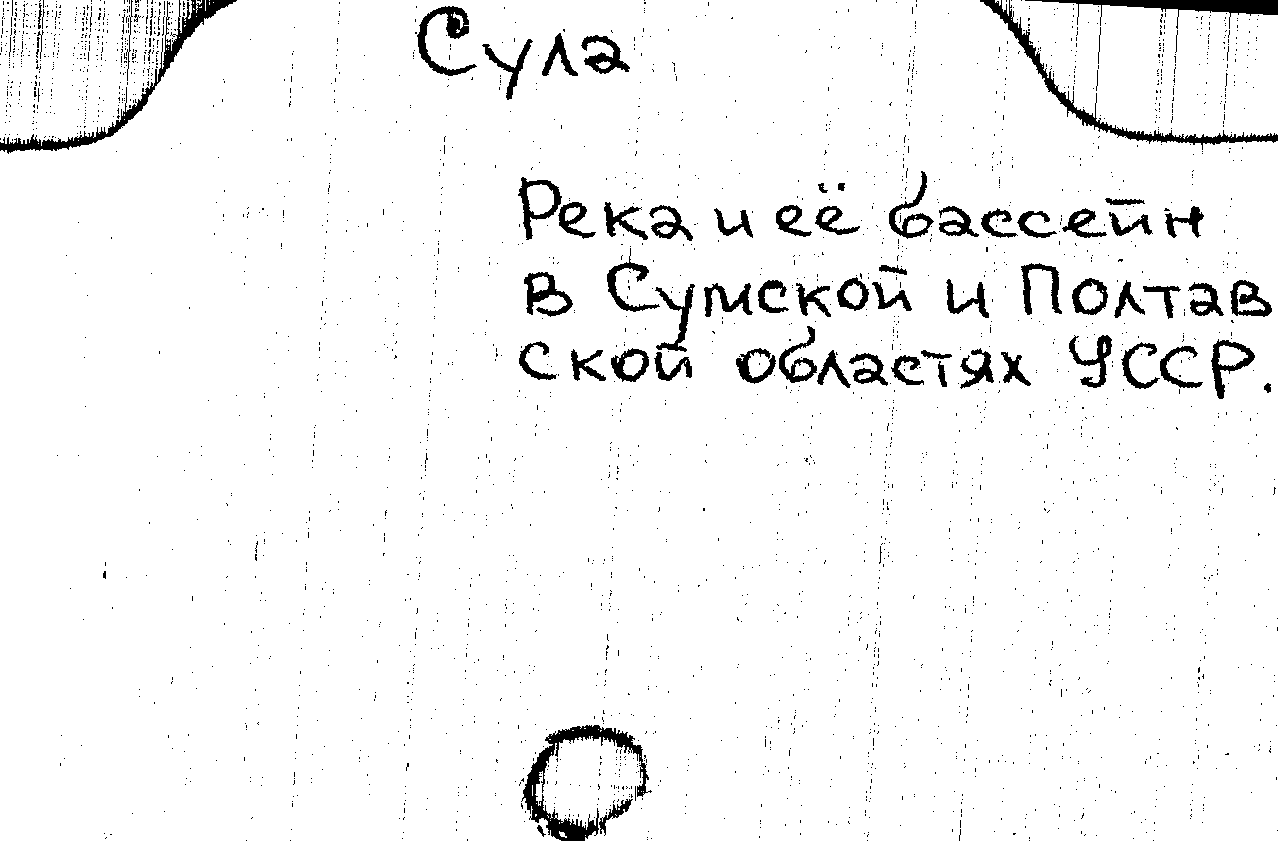 Сула
Река и её бассейн
в Сумской и Полтав
ской областях УССР.